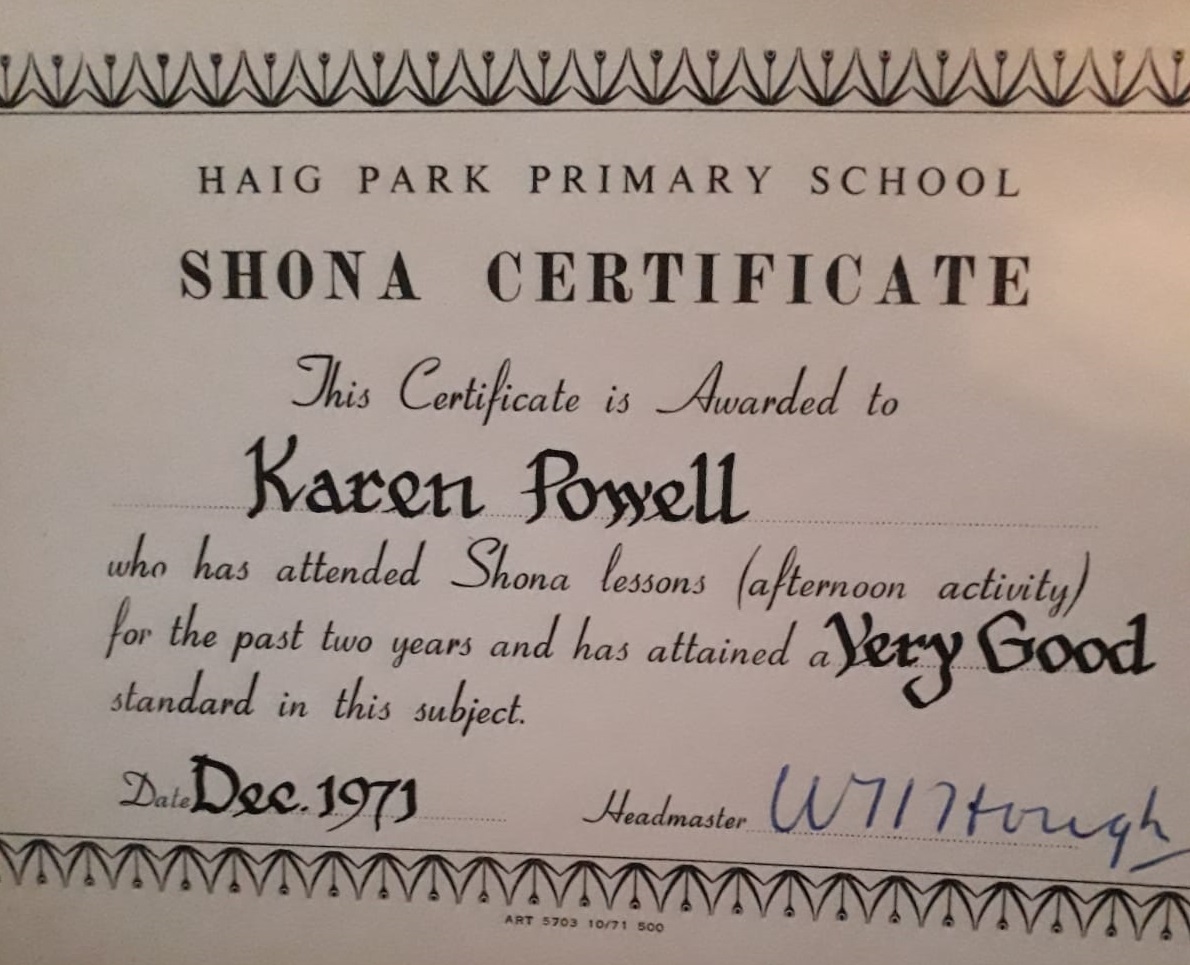 HAIG PARK PRIMARY SCHOOL
SHONA CERTIFICATE
This Certificate is Awarded to
Karen Powell
who has attended Shona lessons (afternoon activity)
for the past two years and has attained a Very Good
standard in this subject.
Date Dec. 1971 Headmaster
ART 5703 10/71 500